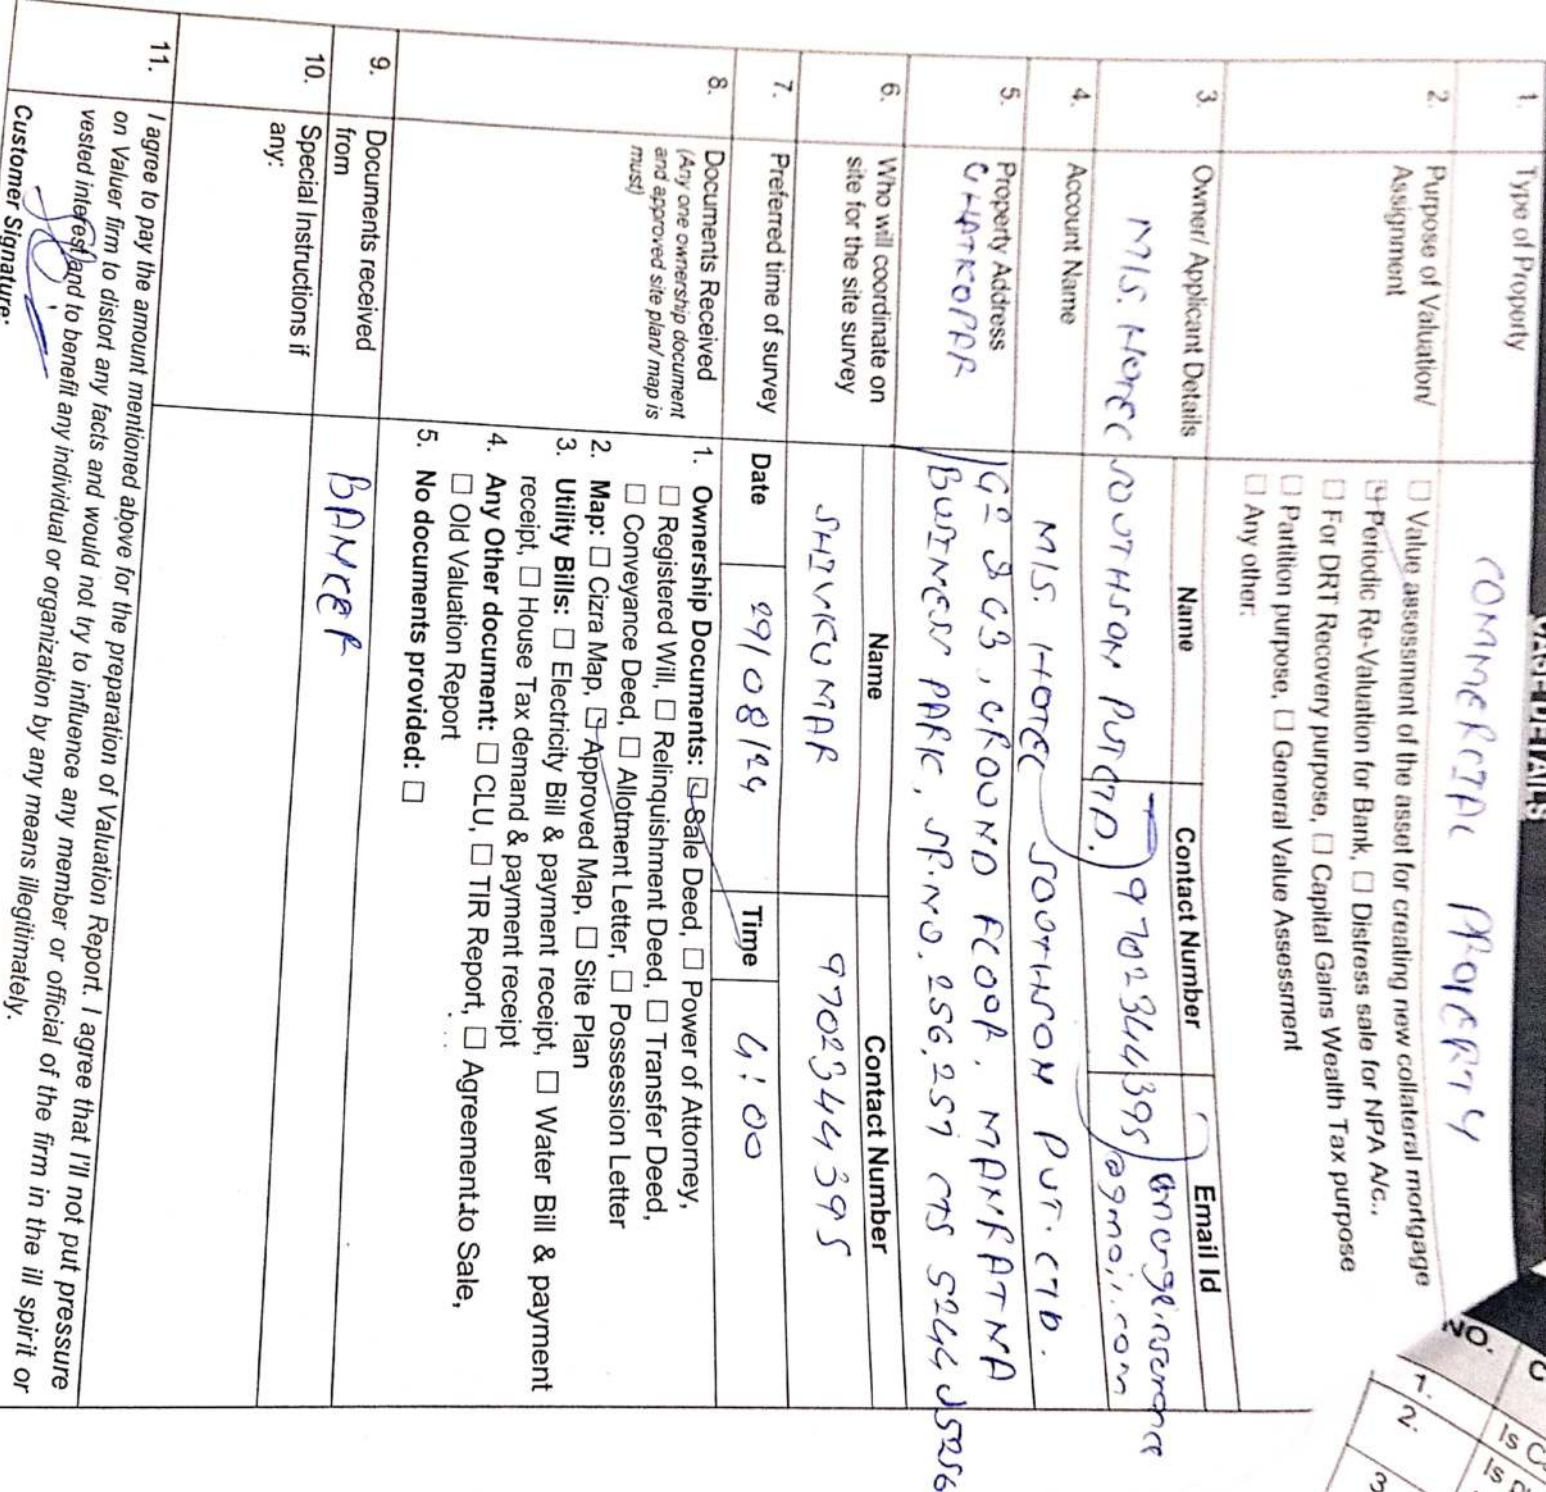 CASE DETAILS
1. Type of Property COMMERCIAL PROPERTY
2. Purpose of Valuation/ Assignment
☐ Value assessment of the asset for creating new collateral mortgage
☑ Periodic Re-Valuation for Bank, ☐ Distress sale for NPA A/c.,
☐ For DRT Recovery purpose, ☐ Capital Gains Wealth Tax purpose
☐ Partition purpose, ☐ General Value Assessment
☐ Any other:
3. Owner/ Applicant Details Name Contact Number Email Id
M/S. HOTEL SOUTHSON PVT LTD. 9702344395 @gmail.com
4. Account Name M/S. HOTEL SOUTHSON PVT. LTD.
5. Property Address G2 & G3, GROUND FLOOR, MANRATNA
GHATKOPAR BUSINESS PARK, SR.NO. 256, 257 CTS 5244 5256
6. Who will coordinate on site for the site survey
Name Contact Number
SHIVKUMAR 9702344395
7. Preferred time of survey Date 29/08/24 Time 4:00
8. Documents Received
(Any one ownership document
and approved site plan/ map is
must)
1. Ownership Documents: ☑ Sale Deed, ☐ Power of Attorney,
☐ Registered Will, ☐ Relinquishment Deed, ☐ Transfer Deed,
☐ Conveyance Deed, ☐ Allotment Letter, ☐ Possession Letter
2. Map: ☐ Cizra Map, ☑ Approved Map, ☐ Site Plan
3. Utility Bills: ☐ Electricity Bill & payment receipt, ☐ Water Bill & payment
receipt, ☐ House Tax demand & payment receipt
4. Any Other document: ☐ CLU, ☐ TIR Report, ☐ Agreement to Sale,
☐ Old Valuation Report
5. No documents provided: ☐
9. Documents received from BANKER
10. Special Instructions if any:
11. I agree to pay the amount mentioned above for the preparation of Valuation Report. I agree that I'll not put pressure
on Valuer firm to distort any facts and would not try to influence any member or official of the firm in the ill spirit or
vested interest and to benefit any individual or organization by any means illegitimately.
Customer Signature:
NO.
1. Is
2. Is
3